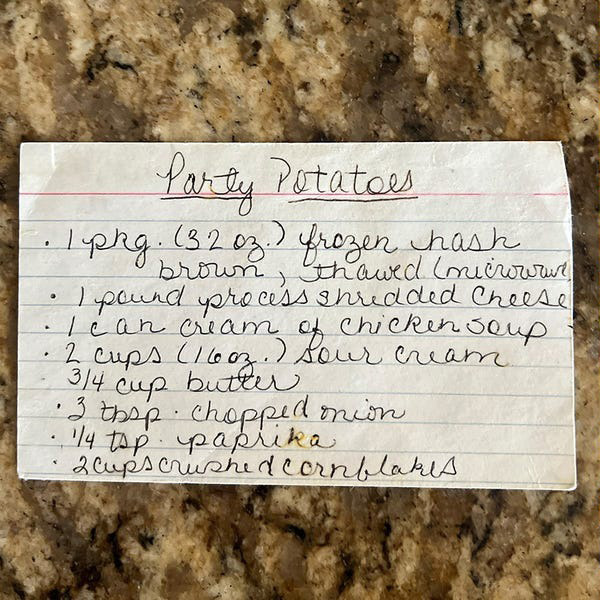 Party Potatoes
· 1 pkg. (32 oz.) frozen hash
brown, thawed (microwave
· 1 pound process shredded Cheese
· 1 can cream of chicken soup
· 2 cups (16 oz.) sour cream
3/4 cup butter
· 3 tbsp. chopped onion
· 1/4 tsp. paprika
· 2 cups crushed cornflakes